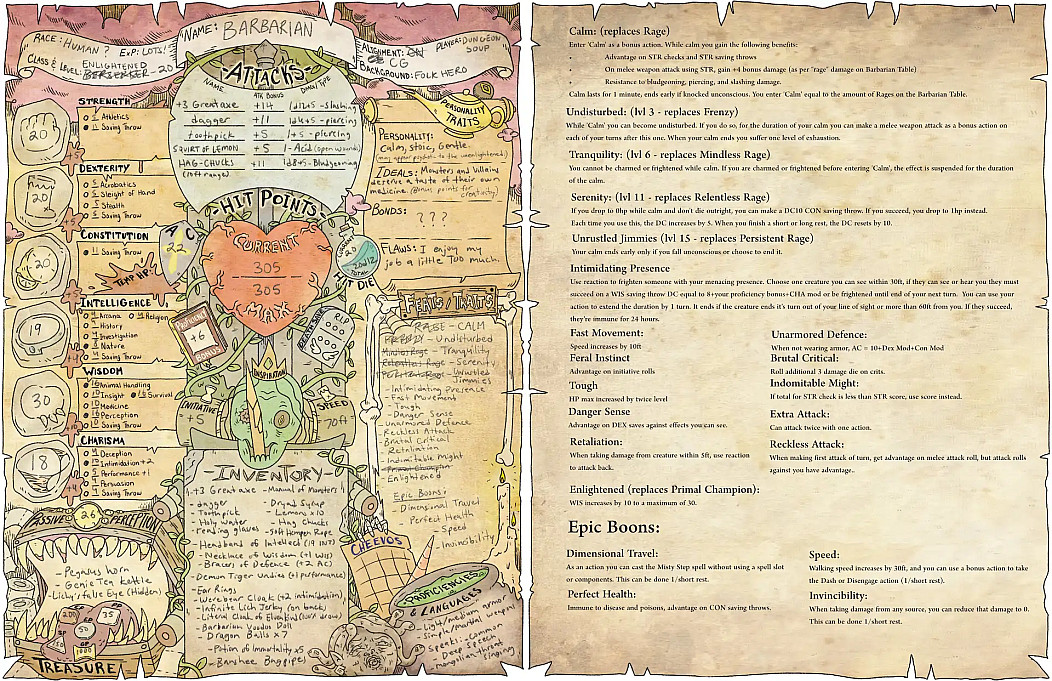 NAME: BARBARIAN
RACE: HUMAN ? EXP: LOTS!
CLASS & LEVEL: ENLIGHTENED
BERSERKER - 20
ALIGNMENT: CG
PLAYER: DUNGEON SOUP
BACKGROUND: FOLK HERO
STRENGTH
20
+5
Athletics
Saving Throw
DEXTERITY
20
Acrobatics
Sleight of Hand
Stealth
Saving Throw
CONSTITUTION
20
Saving Throw
TEMP HP:
INTELLIGENCE
19
+4
Arcana
Religion
History
Investigation
Nature
Saving Throw
WISDOM
30
+10
Animal Handling
Insight
Survival
Medicine
Perception
Saving Throw
CHARISMA
18
+4
Deception
Intimidation +2
Performance +1
Persuasion
Saving Throw
PASSIVE 26 PERCEPTION
- Pegasus Horn
- Genie Tea Kettle
- Licky's False Eye (Hidden)
TREASURE
ATTACKS
NAME ATK BONUS DMG/TYPE
+3 Greataxe +14 1d12+5 - slashing
dagger +11 1d4+5 - piercing
toothpick +5 1+5 - piercing
SQUIRT OF LEMON +5 1-Acid (open wounds)
HAG-CHUCKS +11 1d8+5-Bludgeoning
(10ft range)
-HIT POINTS-
CURRENT
305
305
MAX
AC
22
HIT DIE
20d12
TOTAL
PROFICIENCY
+6
BONUS
DEATH SAVES
INSPIRATION
INITIATIVE
+5
SPEED
70ft
-INVENTORY-
- +3 Greataxe - Manual of Monsters
- dagger - Dryad Syrup
- Toothpick - Lemons x10
- Holy water - Hag Chucks
- reading glasses - 50ft Hempen Rope
- Headband of Intellect (19 INT)
- Necklace of Wisdom (+1 WIS)
- Bracers of Defence (+2 AC)
- Demon Tiger Undies (+1 performance)
- Ear Rings
- Werebear Cloak (+2 intimidation)
- Infinite Lich Jerky (on back)
- Literal Cloak of Elvenkind (torn drow)
- Barbarian Voodoo Doll
- Dragon Balls x7
- Potion of Immortality x5
- Banshee Bagpipes
PERSONALITY TRAITS
PERSONALITY:
Calm, stoic, Gentle.
(may appear psychotic to the unenlightened)
IDEALS: Monsters and Villains
deserve a taste of their own
medicine. (Bonus points for creativity)
BONDS:
? ? ?
FLAWS: I enjoy my
job a little TOO much.
FEATS / TRAITS
RAGE - CALM
FRENZY - Undisturbed
Mindless Rage - Tranquility
Relentless Rage - Serenity
Persistent Rage - Unrustled
Jimmies
- Intimidating Presence
- Fast Movement
- Tough
- Danger Sense
- Unarmored Defence
- Reckless Attack
- Brutal Critical
- Retaliation
- Indomitable Might
- Primal Champion
- Enlightened
Epic Boons:
- Dimensional Travel
- Perfect Health
- Speed
- Invincibility
CHEEVOS
PROFICIENCIES
& LANGUAGES
- Light/medium armor
- Simple/martial weapons
Speaks: - Common
Deep Speech
mongolian throat
singing
Calm: (replaces Rage)
Enter 'Calm' as a bonus action. While calm you gain the following benefits:
• Advantage on STR checks and STR saving throws
• On melee weapon attack using STR, gain +4 bonus damage (as per "rage" damage on Barbarian Table)
• Resistance to bludgeoning, piercing, and slashing damage.
Calm lasts for 1 minute, ends early if knocked unconscious. You enter 'Calm' equal to the amount of Rages on the Barbarian Table.
Undisturbed: (lvl 3 - replaces Frenzy)
While 'Calm' you can become undisturbed. If you do so, for the duration of your calm you can make a melee weapon attack as a bonus action on
each of your turns after this one. When your calm ends you suffer one level of exhaustion.
Tranquility: (lvl 6 - replaces Mindless Rage)
You cannot be charmed or frightened while calm. If you are charmed or frightened before entering 'Calm', the effect is suspended for the duration
of the calm.
Serenity: (lvl 11 - replaces Relentless Rage)
If you drop to 0hp while calm and don't die outright, you can make a DC10 CON saving throw. If you succeed, you drop to 1hp instead.
Each time you use this, the DC increases by 5. When you finish a short or long rest, the DC resets by 10.
Unrustled Jimmies (lvl 15 - replaces Persistent Rage)
Your calm ends early only if you fall unconscious or choose to end it.
Intimidating Presence
Use reaction to frighten someone with your menacing presence. Choose one creature you can see within 30ft, if they can see or hear you they must
succeed on a WIS saving throw (DC equal to 8+your proficiency bonus+CHA mod or be frightened until end of your next turn. You can use your
action to extend the duration by 1 turn. It ends if the creature ends it's turn out of your line of sight or more than 60ft from you. If they succeed,
they're immune for 24 hours.
Fast Movement:
Speed increases by 10ft
Feral Instinct
Advantage on initiative rolls
Tough
HP max increased by twice level
Danger Sense
Advantage on DEX saves against effects you can see.
Retaliation:
When taking damage from creature within 5ft, use reaction
to attack back.
Unarmored Defence:
When not wearing armor, AC = 10+Dex Mod+Con Mod
Brutal Critical:
Roll additional 3 damage die on crits.
Indomitable Might:
If total for STR check is less than STR score, use score instead.
Extra Attack:
Can attack twice with one action.
Reckless Attack:
When making first attack of turn, get advantage on melee attack roll, but attack rolls
against you have advantage..
Enlightened (replaces Primal Champion):
WIS increases by 10 to a maximum of 30.
Epic Boons:
Dimensional Travel:
As an action you can cast the Misty Step spell without using a spell slot
or components. This can be done 1/short rest.
Perfect Health:
Immune to disease and poisons, advantage on CON saving throws.
Speed:
Walking speed increases by 30ft, and you can use a bonus action to take
the Dash or Disengage action (1/short rest).
Invincibility:
When taking damage from any source, you can reduce that damage to 0.
This can be done 1/short rest.